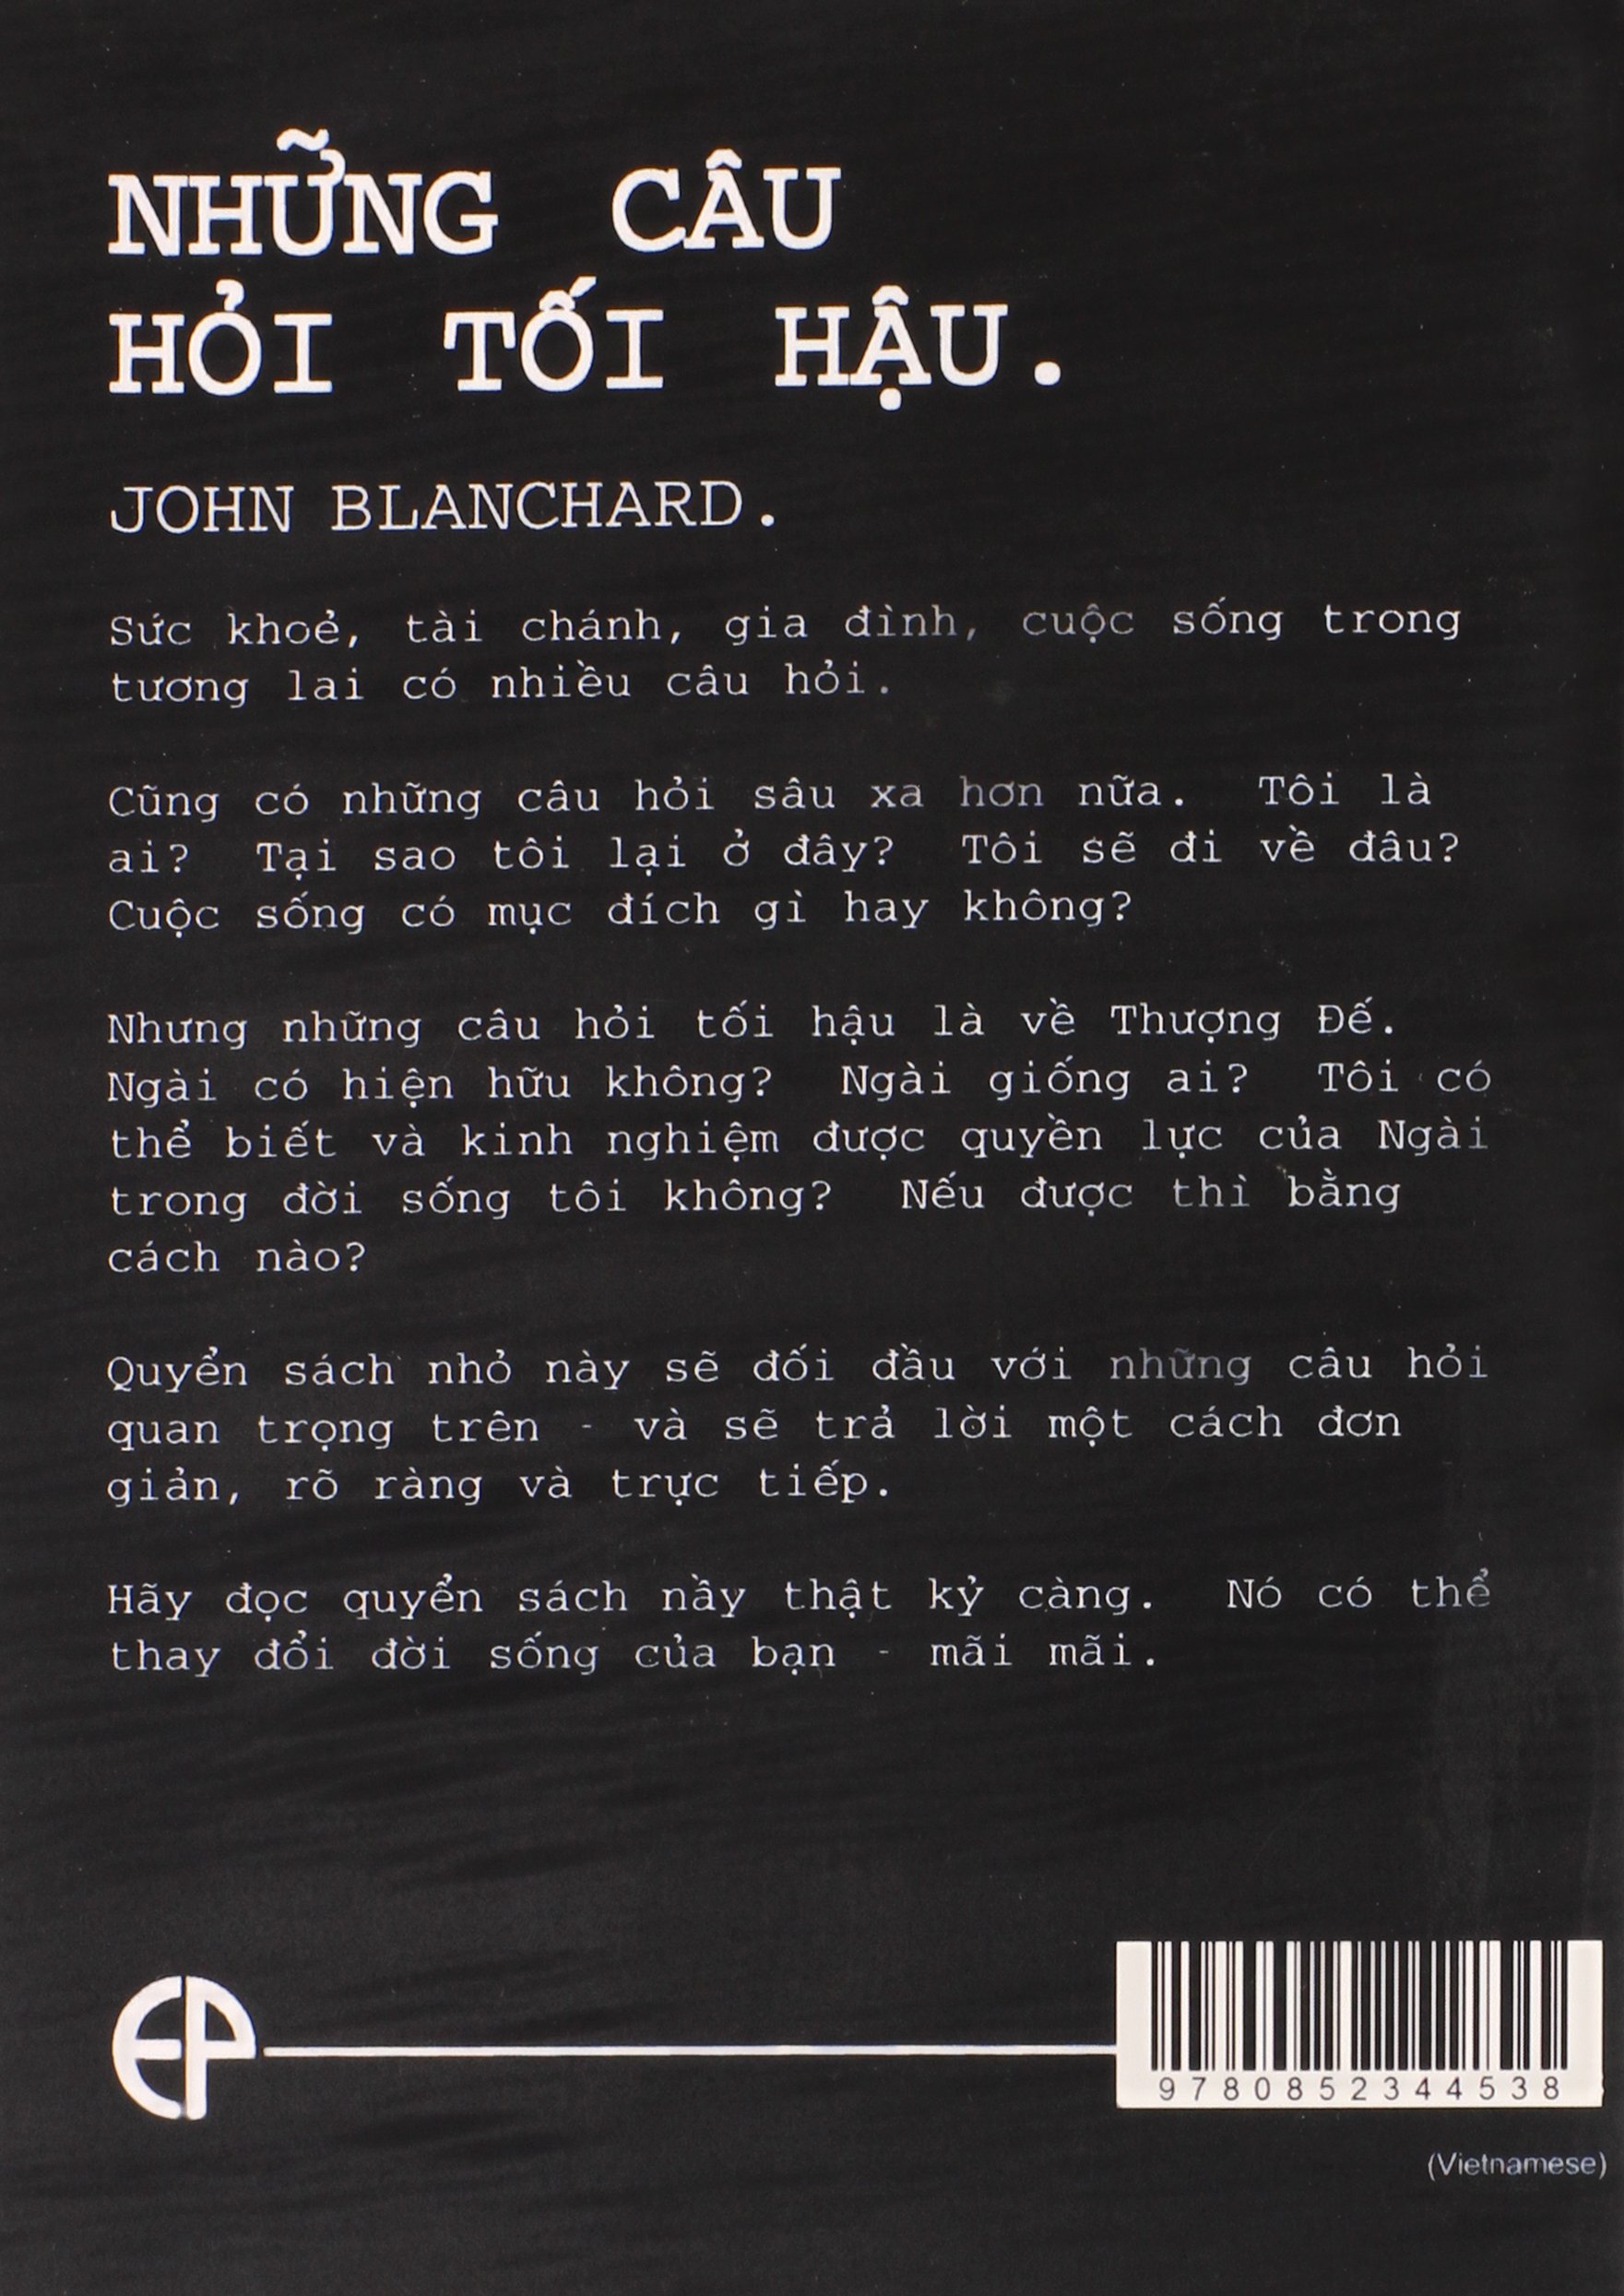 NHỮNG CÂU
HỎI TỐI HẬU.
JOHN BLANCHARD.
Sức khoẻ, tài chánh, gia đình, cuộc sống trong
tương lai có nhiều câu hỏi.
Cũng có những câu hỏi sâu xa hơn nữa. Tôi là
ai? Tại sao tôi lại ở đây? Tôi sẽ đi về đâu?
Cuộc sống có mục đích gì hay không?
Nhưng những câu hỏi tối hậu là về Thượng Đế.
Ngài có hiện hữu không? Ngài giống ai? Tôi có
thể biết và kinh nghiệm được quyền lực của Ngài
trong đời sống tôi không? Nếu được thì bằng
cách nào?
Quyển sách nhỏ này sẽ đối đầu với những câu hỏi
quan trọng trên - và sẽ trả lời một cách đơn
giản, rõ ràng và trực tiếp.
Hãy đọc quyển sách nầy thật kỷ càng. Nó có thể
thay đổi đời sống của bạn - mãi mãi.
EP
9780852344538
(Vietnamese)